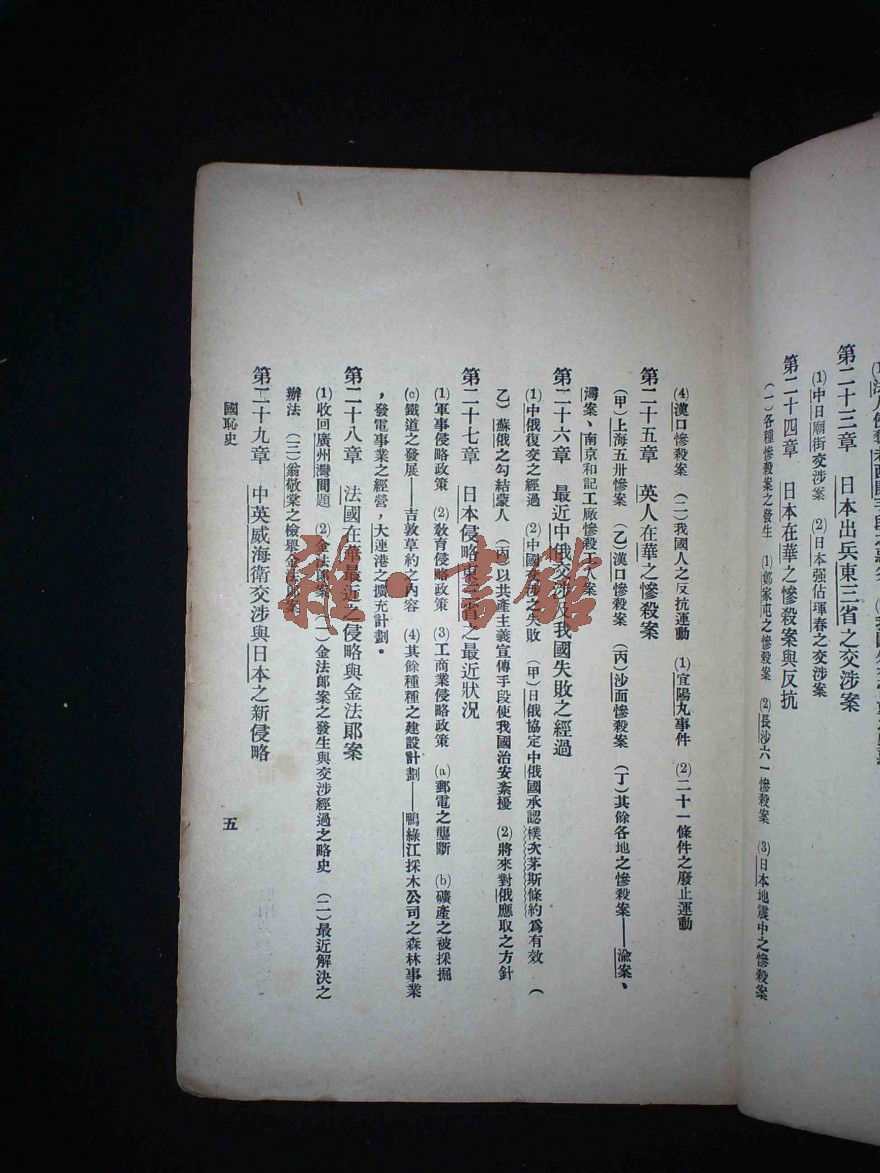 第二十三章　日本出兵東三省之交涉案
(1)中日廟街交涉案　(2)日本强佔琿春之交涉案
第二十四章　日本在華之慘殺案與反抗
(一)各種慘殺案之發生　(1)鄭家屯之慘殺案　(2)長沙六一慘殺案　(3)日本地震中之慘殺案
(4)漢口慘殺案　(二)我國人之反抗運動　(1)宜陽丸事件　(2)二十一條件之廢止運動
第二十五章　英人在華之慘殺案
(甲)上海五卅慘殺案　(乙)漢口慘殺案　(丙)沙面慘殺案　(丁)其餘各地之慘殺案——渝案、
潯案、南京和記工廠慘殺工人案
第二十六章　最近中俄交涉及我國失敗之經過
(1)中俄復交之經過　(2)中國交涉之失敗　(甲)日俄協定中俄國承認樸次茅斯條約爲有效　(
乙)蘇俄之勾結蒙人　(丙)以共產主義宣傳手段使我國治安紊擾　(2)將來對俄應取之方針
第二十七章　日本侵略東三省之最近狀況
(1)軍事侵略政策　(2)敎育侵略政策　(3)工商業侵略政策　(a)郵電之壟斷　(b)礦產之被採掘
(c)鐵道之發展——吉敦草約之內容　(4)其餘種種之建設計劃——鴨綠江採木公司之森林事業
，發電事業之經營，大連港之擴充計劃．
第二十八章　法國在華最近之侵略與金法郞案
(1)收回廣州灣問題　(2)金法郞案　(一)金法郞案之發生與交涉經過之略史　(二)最近解決之
辦法　(三)翁敬棠之檢舉金法郞案
第二十九章　中英威海衛交涉與日本之新侵略
國恥史
五
雜·書館